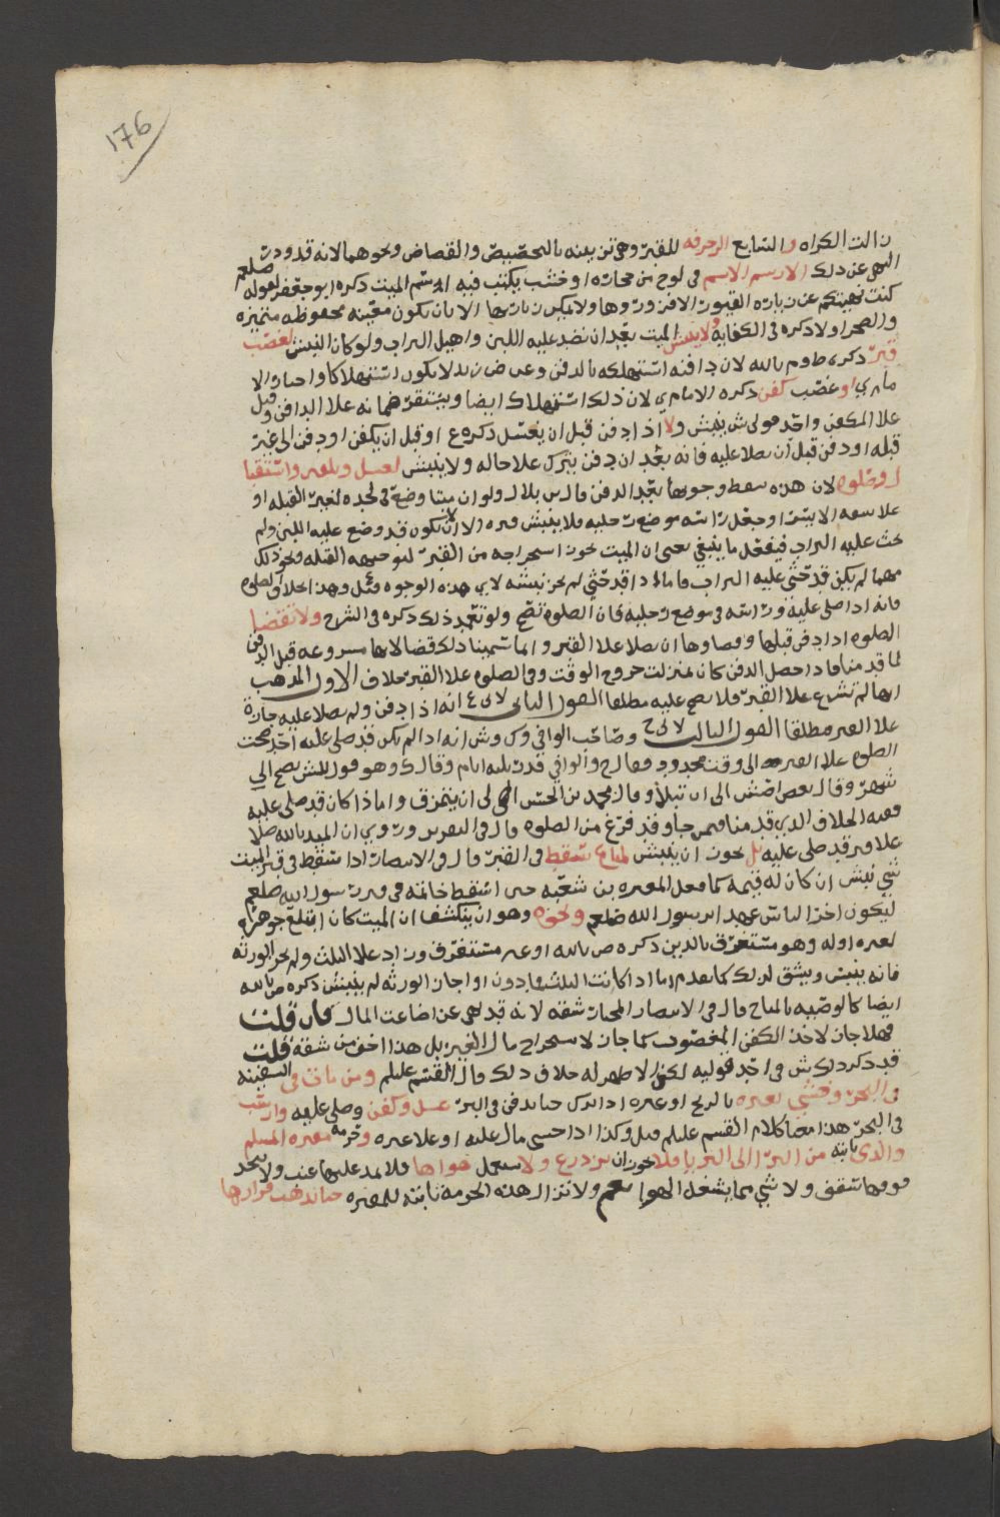 176
زالت الكراه والسابع الزخرفه للقبر وهي تزيينه بالتجصيص والقصاص ونحوهما لانه قد ورد
النهي عن ذلك الا رسم الاسم في لوح من حجاره او خشب يكتب فيه اسم الميت ذكره ابو جعفر لقوله صلعم
كنت نهيتكم عن زيارة القبور الا فزوروها ولا تمكن زيارتها الا بان تكون معينه محفوظه متميزه
ذكره في الكفايه ولا ينبش الميت بعد ان نضد عليه اللبن واهيل التراب ولو كان النبش لغصب
قبر ذكره ط و م بالله لان دافنه استهلكه بالدفن
او غصب كفن ذكره الامام ي لان ذلك استهلاك ايضا علا الدافن وقيل
علا المكفن ينبش ولا اذا دفن قبل ان يغسل ذكره ع او قبل ان يكفن او دفن الى غير
قبله او دفن قبل ان يصلا عليه فانه بعد ان دفن يترك علا حاله ولا ينبش لغسل وتكفين واستقبال
او صلوه لان هذه سقط وجوبها بعد الدفن ولو ان ميتا وضع في لحده لغير القبله او
علا شقه الايسر او جعل راسه موضع رجليه فلا ينبش قبره الا ان يكون قد وضع عليه اللبن ولم
يحث عليه التراب فيفعل ما ينبغي يعني ان الميت يجوز استخراجه من القبر لتوجيهه القبله ونحو ذلك
مهما لم يكن قد حثي عليه التراب فاما اذا قد حثي لم يجز نبشه لاي هذه الوجوه
فانه اذا صلى عليه وراسه في موضع رجليه فان الصلوه تصح ولو تعمد ذلك ذكره في الشرح ولا تقضا
الصلوه اذا دفن قبلها وقضاوها ان يصلا علا القبر وانما سمينا ذلك قضا لانها مشروعه قبل الدفن
لما قدمنا فاذا حصل الدفن كان بمنزلت خروج الوقت وفي الصلوه علا القبر خلاف الاول المذهب
انها لم تشرع علا القبر فلا يصح عليه مطلقا القول الثاني انه اذا دفن ولم يصلا عليه جازت
علا القبر مطلقا القول الثالث وصاحب الوافي وك وش انه اذا لم يكن قد صلى عليه احد صحت
الصلوه علا القبر الى وقت محدود فقال ح والوافي قدر ثلثه ايام وقال ك وهو قول للش يصح الى
شهر وقال بعض اصش الى ان يبلا وقال محمد بن الحسن الى ان يتمزق واما اذا كان قد صلى عليه
ففيه الخلاف الذي قدمنا فيمن جا وقد فرغ من الصلوه قال في التقرير وروي ان الميد بالله صلا
علا قبر قد صلى عليه بل يجوز ان ينبش لمتاع سقط في القبر قال في الانتصار اذا سقط في قبر الميت
شي نبش ان كان له قيمه كما فعل المغيره بن شعبه حين اسقط خاتمه في قبر رسول الله صلعم
ليكون اخر الناس عهدا برسول الله صلعم ونحوه وهو ان ينكشف ان الميت كان ابتلع جوهره
لغيره او له وهو مستغرق بالدين ذكره ص بالله او غير مستغرق وزاد علا الثلث ولم يجز الورثه
فانه ينبش ويشق لذلك كما تقدم اما اذا كانت الثلث فما دون او اجاز الورثه لم ينبش ذكره ص بالله
ايضا كالوصيه بالمباح قال في الانتصار المختار شقه لانه قد نهي عن اضاعت المال فان قلت
فهلا جاز لاخذ الكفن المغصوب كما جاز لاستخراج مال الغير بل هذا اخف من شقه قلت
قد ذكر ذلك ش في احد قوليه لكن الاظهر له خلاف ذلك قال القسم عليلم ومن مات في السفينه
في البحر وخشي تغيره بالريح او غيره اذا ترك حتى يدفن في البر غسل وكفن وصلى عليه وارسب
في البحر هذا معنا كلام القسم عليلم قيل وكذا اذا خشي مال عليه او علا غيره وحرمة مقبره المسلم
والذمي ثابته من الثرا الى الثريا فلا يجوز ان تزدرع ولا يستعمل هواها فلا يمد عليها عنب ولا يتخذ
فوقها سقف ولا شي مما يشغل الهوا نعم ولا تزال هذه الحرمه ثابته للمقبره حتى يذهب قرارها